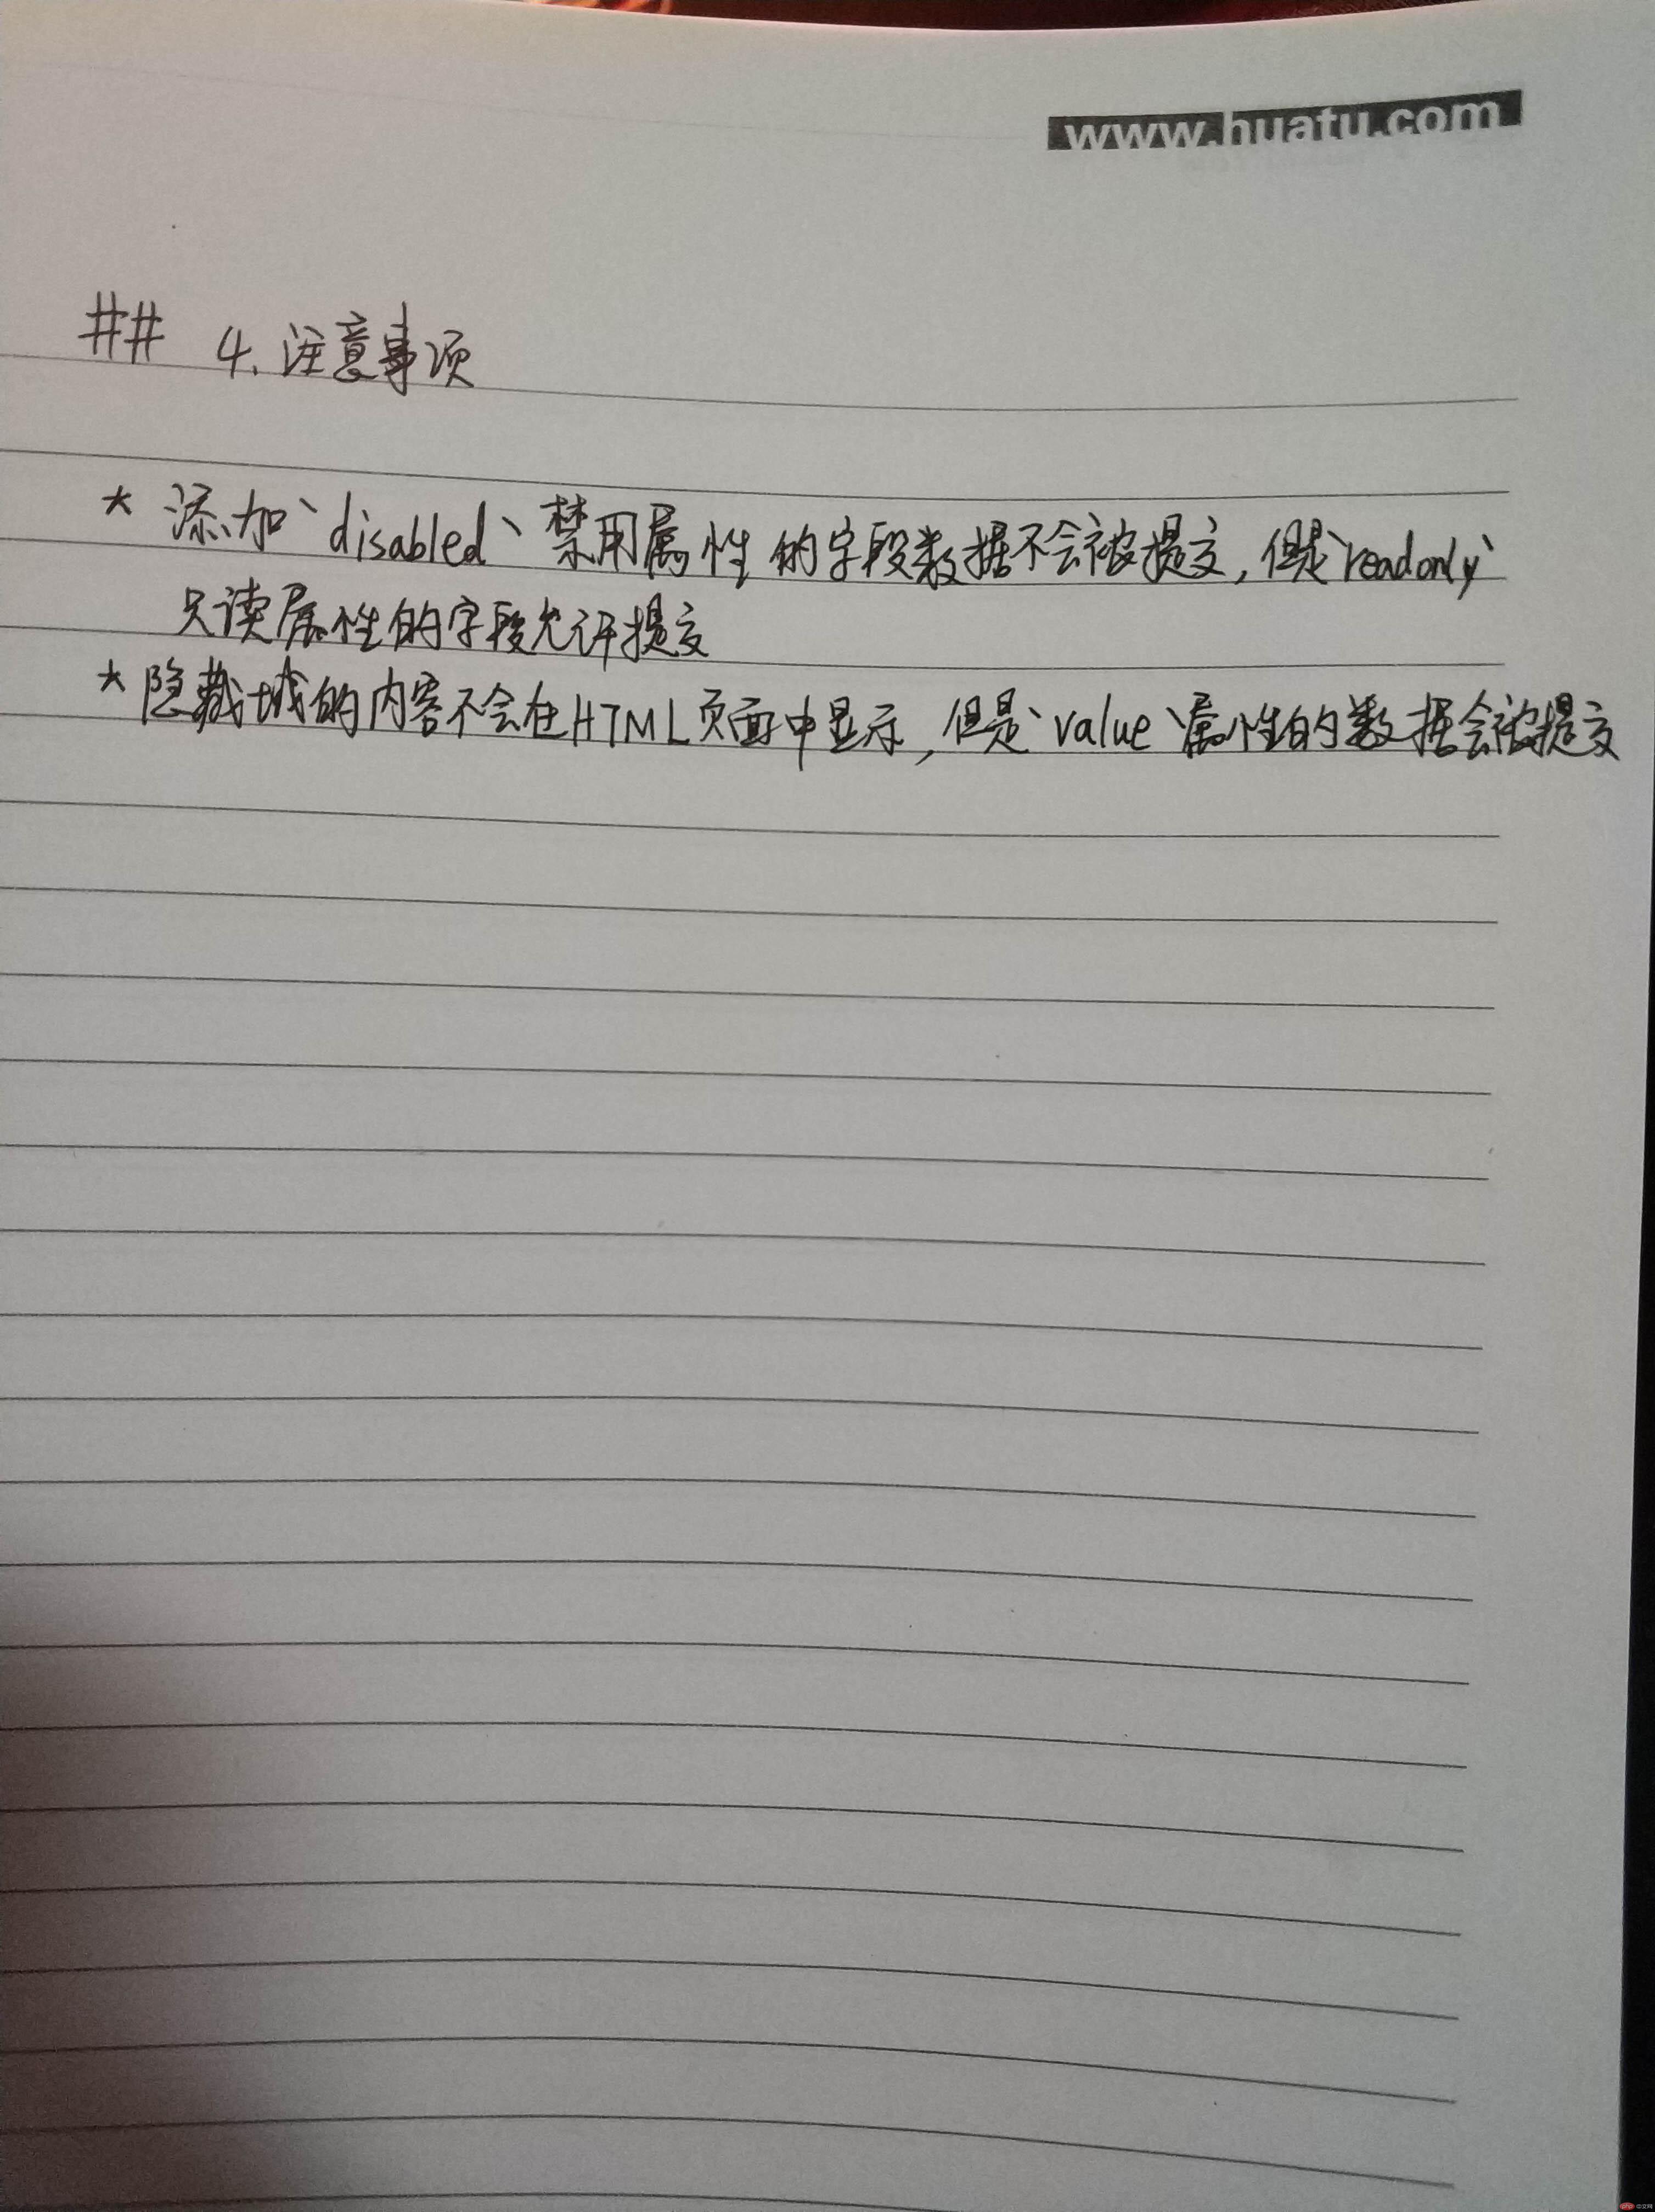 www.huatu.com
## 4. 注意事项
* 添加`disabled`禁用属性的字段数据不会被提交,但是`readonly`
只读属性的字段允许提交
* 隐藏域的内容不会在HTML页面中显示,但是`value`属性的数据会被提交
php 中文网